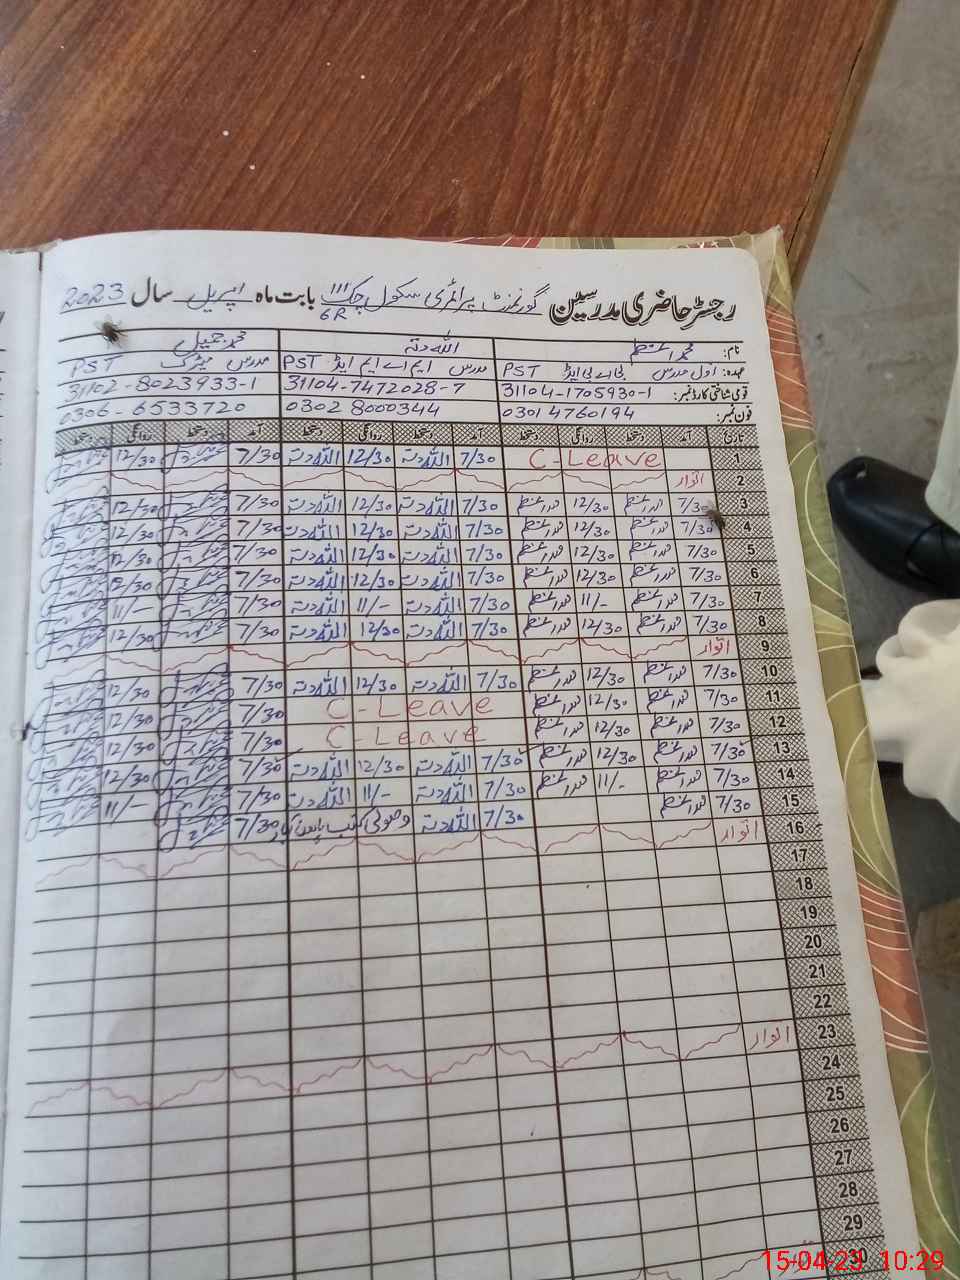 رجسٹر حاضری مدرسین گورنمنٹ پرائمری سکول چک 111 6R بابت ماہ اپریل سال 2023
نام: محمد اعظم اللہ دتہ محمد جمیل
عہدہ: اول مدرس بی اے بی ایڈ PST مدرس ایم اے ایم ایڈ PST مدرس میٹرک PST
قومی شناختی کارڈ نمبر: 31104-1705930-1 31104-7472028-7 31102-8023933-1
فون نمبر: 03014760194 0302 8000344 0306-6533720
تاریخ آمد دستخط روانگی دستخط آمد دستخط روانگی دستخط آمد دستخط روانگی دستخط
1 C-Leave 7/30 اللہ دتہ 12/30 اللہ دتہ 7/30 12/30
2 اتوار
3 7/30 محمد اعظم 12/30 محمد اعظم 7/30 اللہ دتہ 12/30 اللہ دتہ 7/30 12/30
4 7/30 محمد اعظم 12/30 محمد اعظم 7/30 اللہ دتہ 12/30 اللہ دتہ 7/30 12/30
5 7/30 محمد اعظم 12/30 محمد اعظم 7/30 اللہ دتہ 12/30 اللہ دتہ 7/30 12/30
6 7/30 محمد اعظم 12/30 محمد اعظم 7/30 اللہ دتہ 12/30 اللہ دتہ 7/30 12/30
7 7/30 محمد اعظم 11/- محمد اعظم 7/30 اللہ دتہ 11/- اللہ دتہ 7/30 11/-
8 7/30 محمد اعظم 12/30 محمد اعظم 7/30 اللہ دتہ 12/30 اللہ دتہ 7/30 12/30
9 اتوار
10 7/30 محمد اعظم 12/30 محمد اعظم 7/30 اللہ دتہ 12/30 اللہ دتہ 7/30 12/30
11 7/30 محمد اعظم 12/30 محمد اعظم C-Leave 7/30 12/30
12 7/30 محمد اعظم 12/30 محمد اعظم C-Leave 7/30 12/30
13 7/30 محمد اعظم 12/30 محمد اعظم 7/30 اللہ دتہ 12/30 اللہ دتہ 7/30 12/30
14 7/30 محمد اعظم 11/- محمد اعظم 7/30 اللہ دتہ 11/- اللہ دتہ 7/30 11/-
15 7/30 محمد اعظم 7/30 اللہ دتہ وصولی کتب 7/30
16 اتوار
17
18
19
20
21
22
23 اتوار
24
25
26
27
28
29
30
15-04-23 10:29